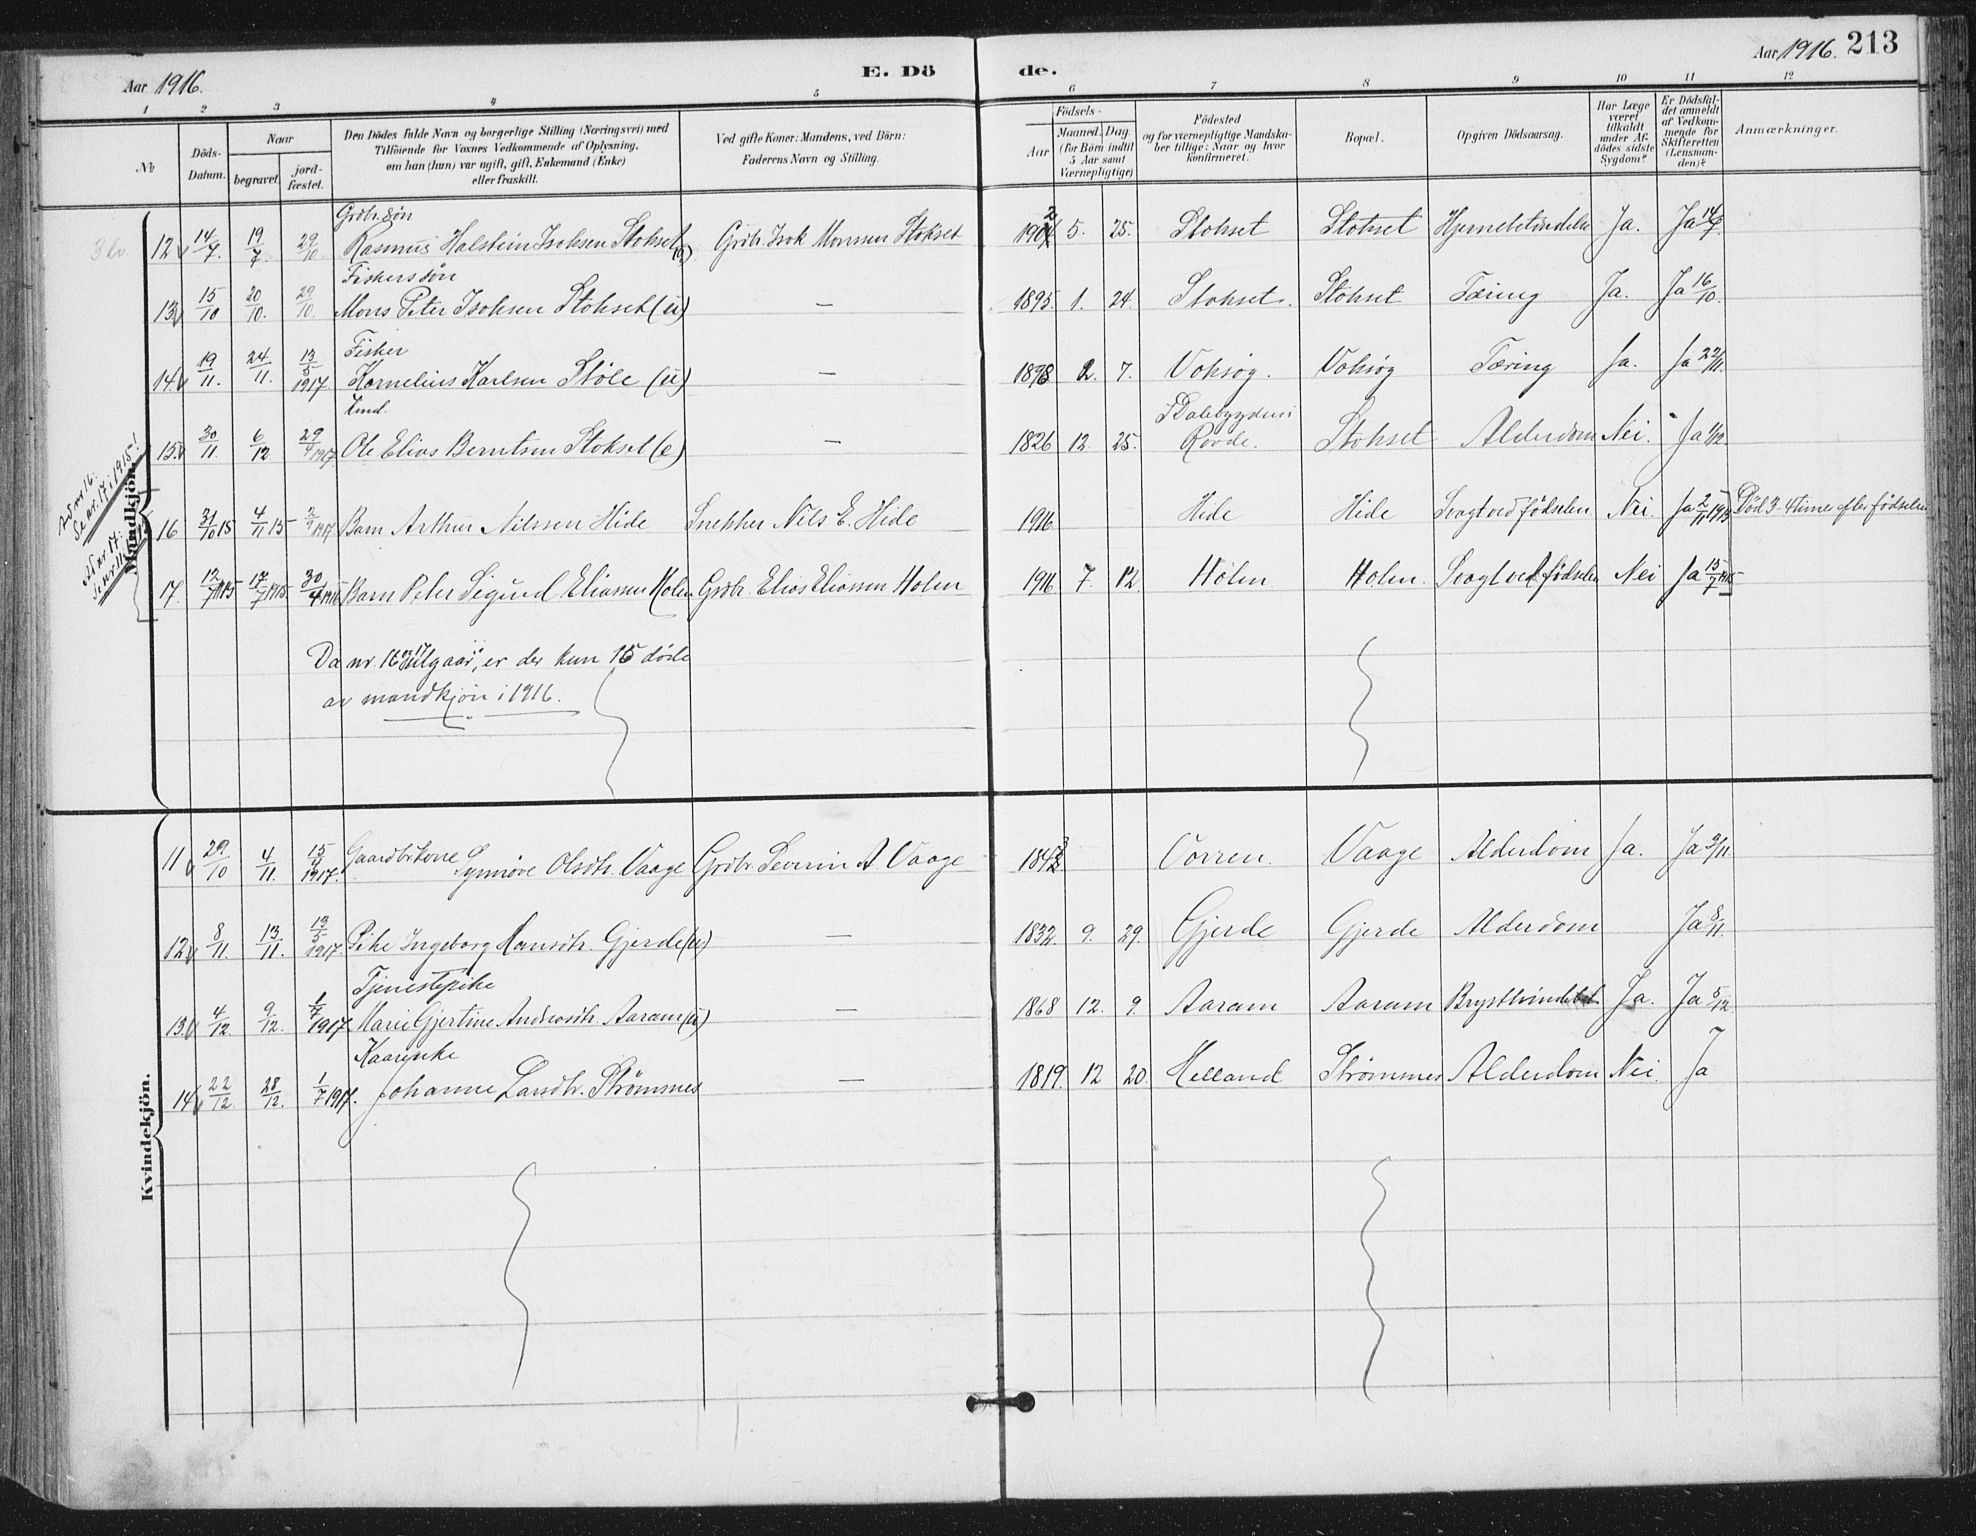 Aar 1916. E. Dö de. Aar 1916. 213
1 2 3 4 5 6 7 8 9 10 11 12
No Döds-Datum. Naar begravet. jord-fæstet.
Den Dödes fulde Navn og borgerlige Stilling (Næringsvei) med
Tilföiende for Voxnes Vedkommende af Oplysning,
om han (hun) var ugift, gift, Enkemand (Enke)
eller fraskilt.
Ved gifte Koner: Mandens, ved Börn:
Faderens Navn og Stilling.
Födsels-
Aar Maaned. Dag.
(for Börn indtil
5 Aar samt
Værnepligtige)
Födested
og for værnepligtige Mandska-
ber tillige: Naar og hvor
konfirmeret.
Bopæl.
Opgiven Dödsaarsag.
Har Læge
været
tilkaldt
under Af-
dödes sidste
Sygdom?
Er Dödsfal-
det anmeldt
af Vedkom-
mende for
Skifteretten
(Lensman-
den)?
Anmærkninger.
Mandkjön.
Grdbr. søn
12 14/7 19/7 29/10 Rasmus Halstein Isaksen Stokset (u) Grdbr. Isak Monsen Stokset 1902 5. 25. Stokset Stokset Hjernebetændelse Ja. Ja 14/7
Fiskers søn
13 15/10 20/10. 29/10. Mons Peter Isaksen Stokset (u) — 1895. 1. 24. Stokset. Stokset Tæring Ja. Ja 16/10.
Fisker
14 19/11. 24/11. 13/5 1917. Kornelius Karlsen Støle (u) — 1898 2. 7. Voksøy. Voksøy Tæring Ja. Ja 22/11.
Emd. Dalsbygden i
15 30/11 6/12 29/4 1917 Ole Elias Berntsen Stokset (e) — 1826 12. 25. Rovde. Stokset Alderdom Nei. Ja 1/12
Ad nr 16:
Se nr. 17 i 1915!
16 31/10 15 4/11 15 1917 Barn Arthur Nilssen Hide Snekker Nils E. Hide 1916 Hide Hide Svagt ved fødselen Nei. Ja 2/11 1915 Død 3-4 timer efter fødselen
Ad nr 17:
17. 12/7 1915 17/7 1915. 30/4 1916 Barn Peter Sigurd Eliassen Holen Grdbr. Elias Eliassen Holen 1916 7. 12. Holen Holen. Svagt ved fødselen Nei Ja 15/7 1915
Da nr. 16 og 17 utgaar, er der kun 15 døde
av mandkjøn i 1916.
Kvindekjön.
11 29/10 4/11. 15/4 1917. Gaardbr.kone Synnøve Olsdtr. Vaage Grdbr. Severin A. Vaage 1843 Vorren. Vaage Alderdom Ja. Ja 2/11.
12 8/11. 13/11. 13/5 1917. Pike Ingeborg Hansdtr. Gjerde (u) — 1832. 9. 29. Gjerde Gjerde Alderdom Ja 8/11.
Tjenestepike
13. 4/12. 9/12. 1/7 1917. Marie Gjertine Andreasdtr. Aaram (u) — 1868 12. 9. Aaram Aaram Ja. Ja 5/12
14 22/12. 28/12. 1/7 1917. Johanne Larsdtr. Strømmes — 1819. 12 20. Helland Strømmes Alderdom Nei. Ja